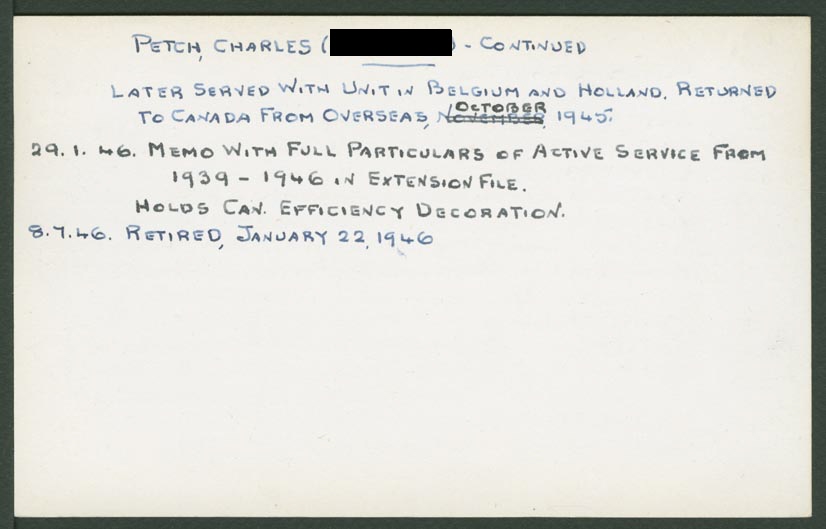 PETCH, CHARLES ( ) - CONTINUED
LATER SERVED WITH UNIT IN BELGIUM AND HOLLAND. RETURNED
TO CANADA FROM OVERSEAS, NOVEMBER OCTOBER, 1945.
29.1.46. MEMO WITH FULL PARTICULARS OF ACTIVE SERVICE FROM
1939 - 1946 IN EXTENSION FILE.
HOLDS CAN. EFFICIENCY DECORATION.
8.7.46. RETIRED, JANUARY 22, 1946